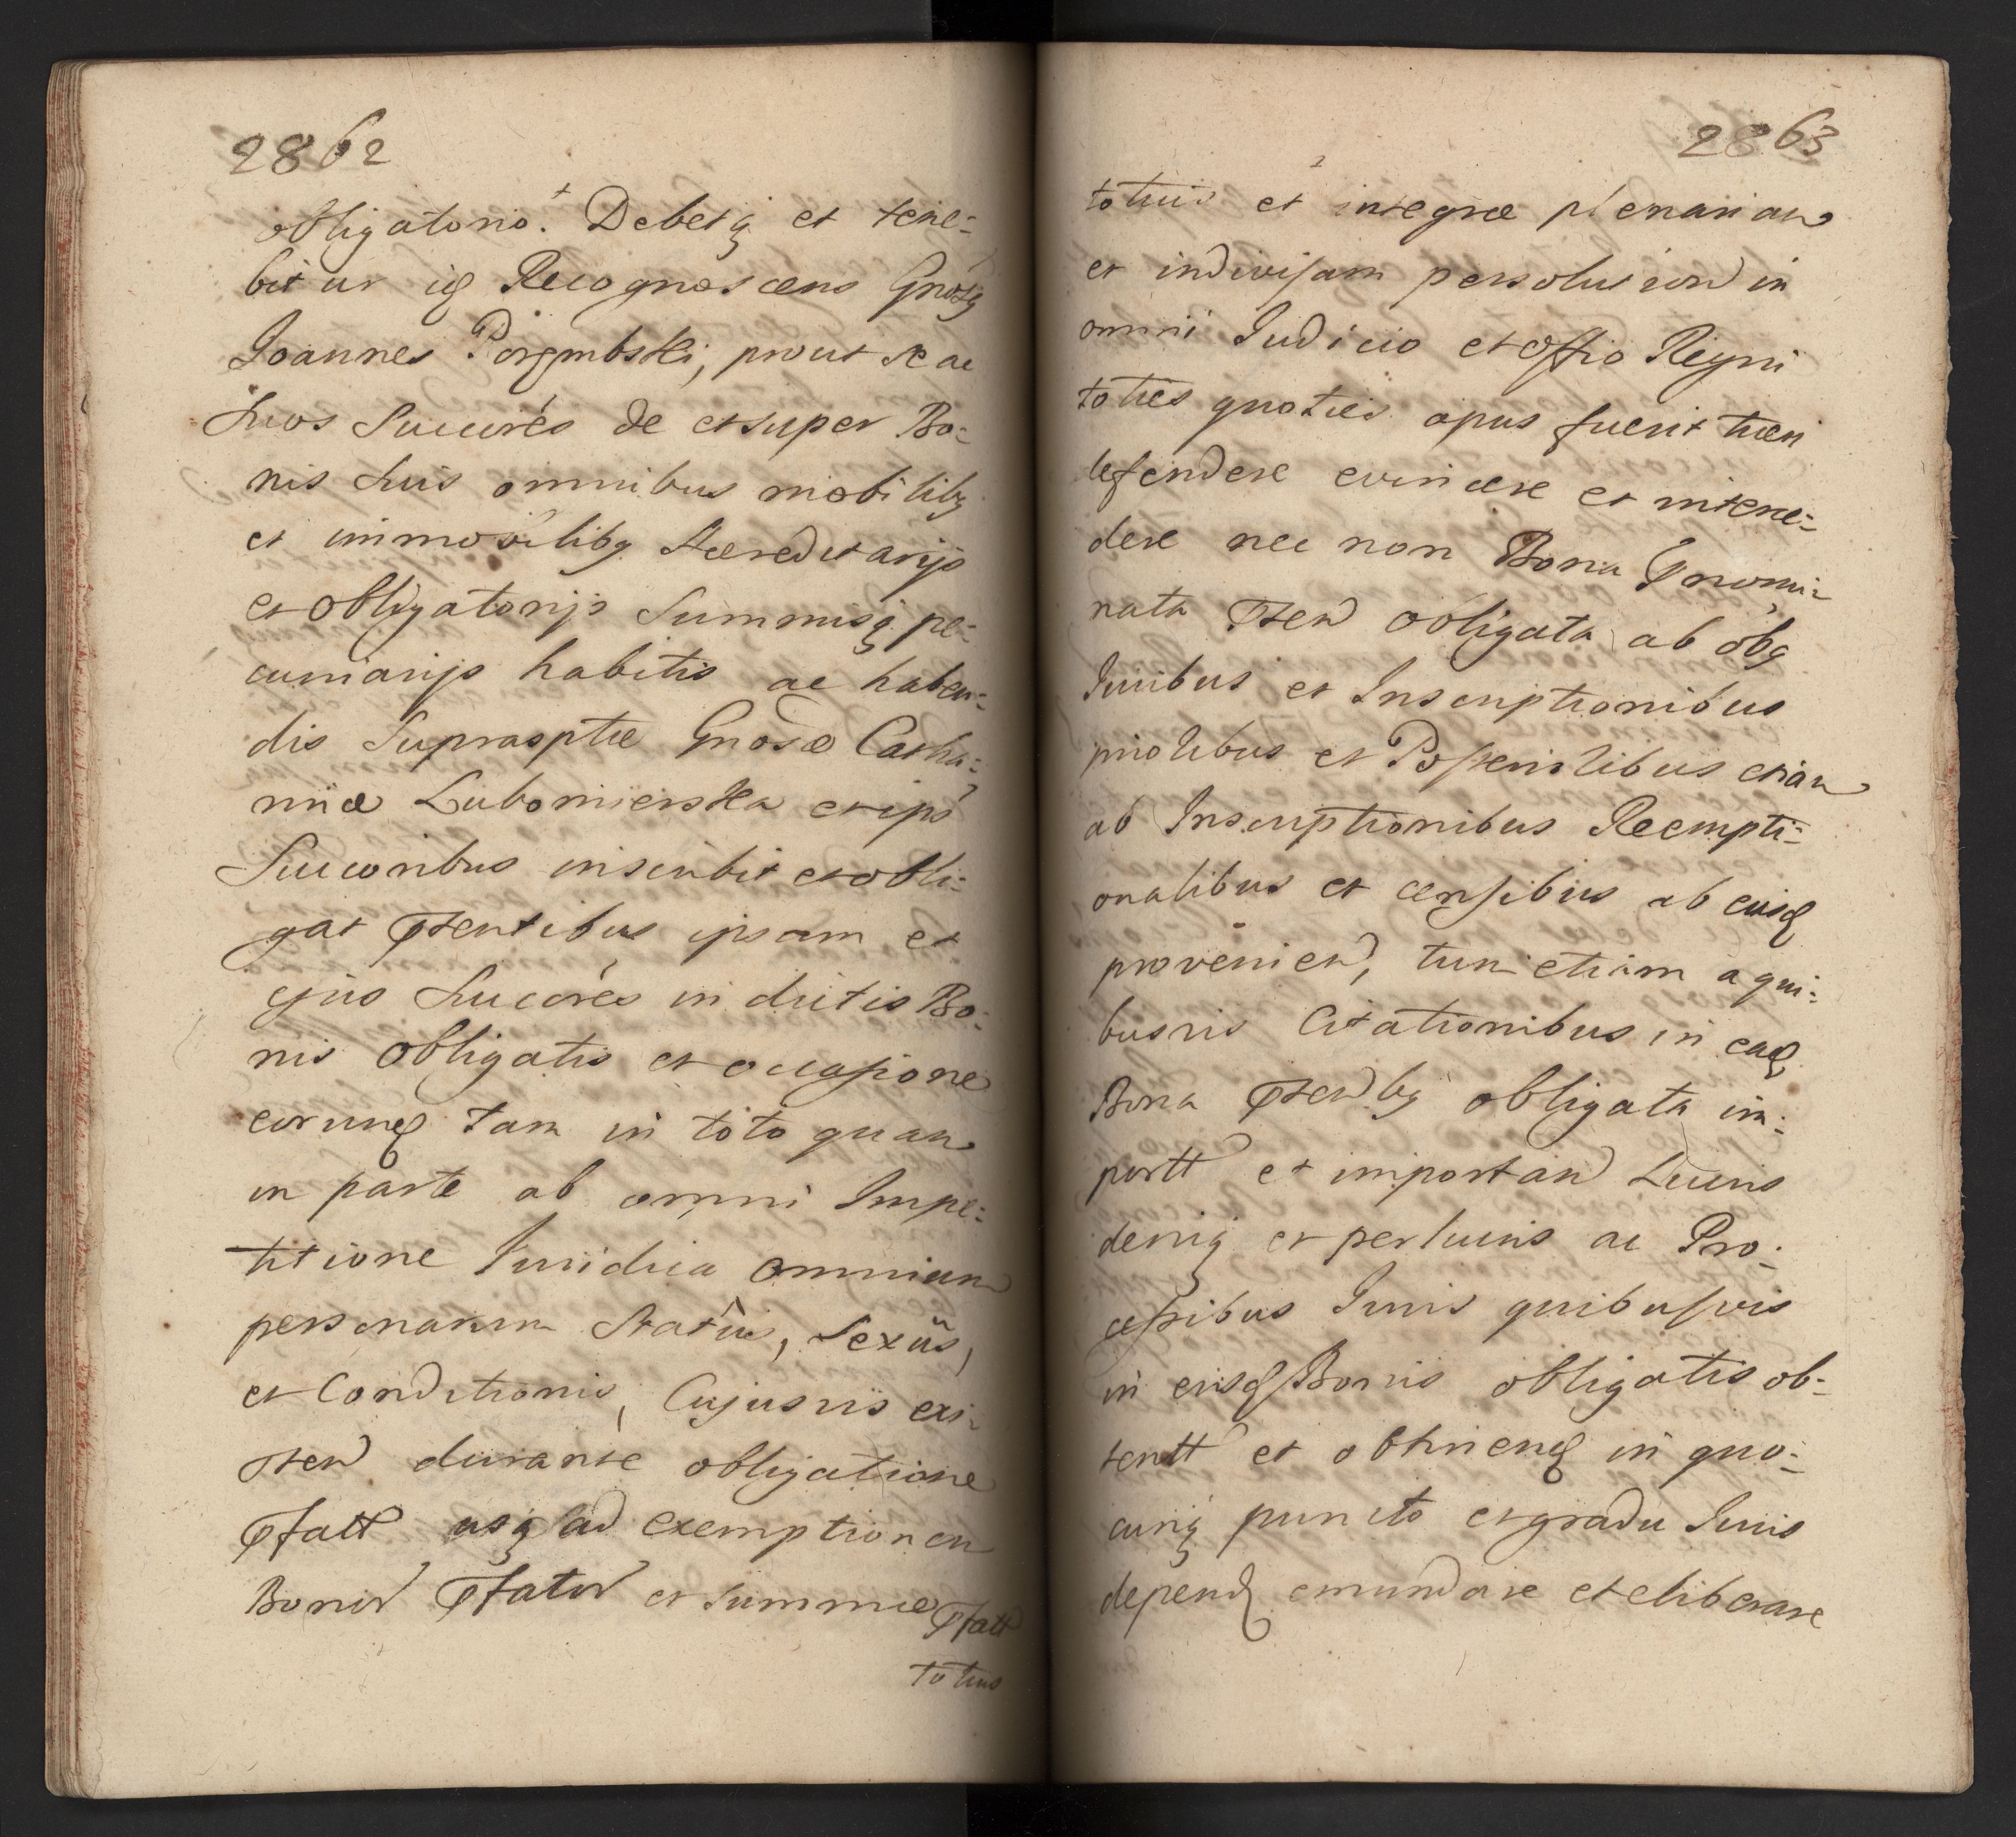 2862
obligatorio. Debetq et tene=
bitur id Recognoscens Gnosq
Joannes Porembski, prout se ac
suos Succres de et super Bo=
nis suis omnibus mobilibq
et immobilibq Haereditarijs
et obligatorijs Summisq pe=
cuniarijs habitis ac haben=
dis suprasptae Gnosae Catha=
rinae Lubomierska et ips
Succoribus inscribit et obli=
gat pstentibus ipsam et
ejus Succores in dictis Bo=
nis obligatis et occasione
eorund tam in toto quam
in parte ab omni Impe=
titione Juridica omnium
personarum Status, Sexûs,
et Conditionis, Cujusvis exi=
sten durante obligatione
pfatt usq ad exemptionem
Bonor pfator et summae pfatt
totius
2863
totius et integrae plenariam
et indivisam persolution in
omni Judicio et Offio Regni
toties quoties opus fuerit tueri
defendere evincere et interce=
dere nec non Bona pnomi=
nata psten obligata ab oibq
Juribus et Inscriptionibus
prioribus et Posterioribus etiam
ab Inscriptionibus Reempti=
onalibus et censibus ab eisd
provenien, tum etiam a qui=
busvis Citationibus in ead
Bona pstenbq obligata im=
portt et importan Lucris
deniq et perlucris ac Pro=
cessibus Juris quibusvis
in eisd Bonis obligatis ob=
tentt et obtinend in quo=
cunq puncto et gradu Juris
depend emundare et eliberare